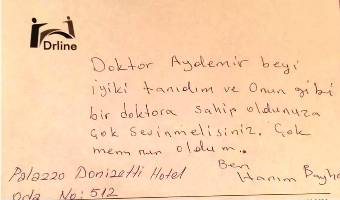 Drline
Doktor Aydemir beyi
iyiki tanıdım ve Onun gibi
bir doktora sahip oldunuza
Çok Sevinmelisiniz. Çok
memnun oldum..
Ben
Hanım
Palazzo Donizetti Hotel
Oda No: 512